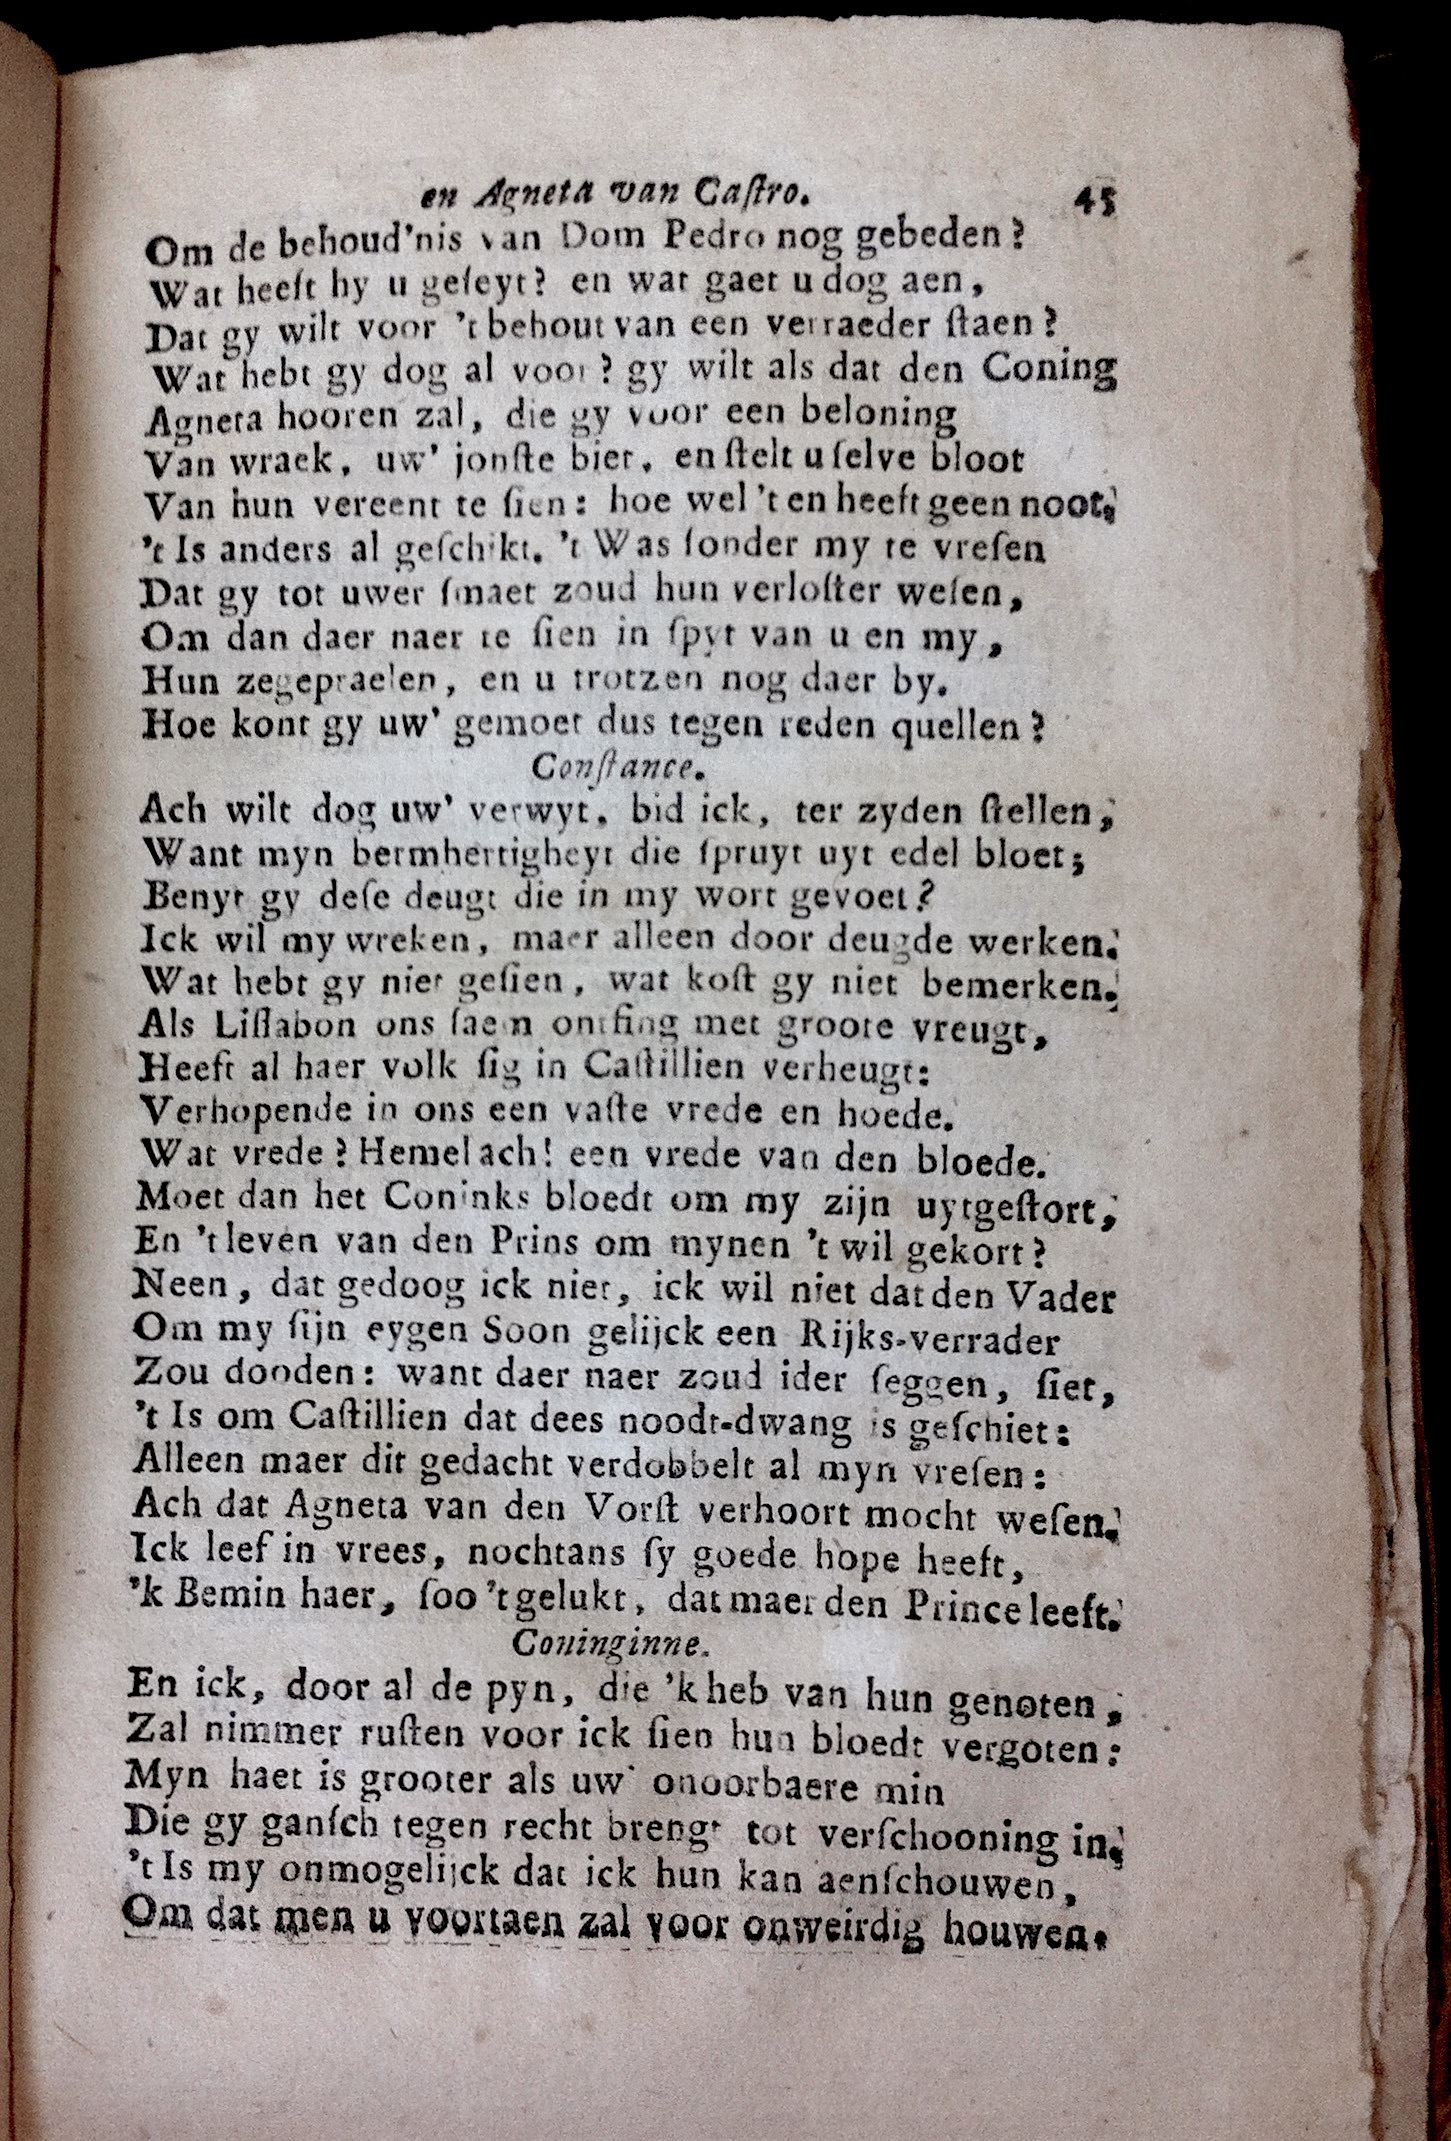 en Agneta van Caſtro. 45
Om de behoud'nis van Dom Pedro nog gebeden?
Wat heeft hy u geſeyt? en wat gaet u dog aen,
Dat gy wilt voor 't behout van een verraeder ſtaen?
Wat hebt gy dog al voor? gy wilt als dat den Coning
Agneta hooren zal, die gy voor een beloning
Van wraek, uw' jonſte biet, en ſtelt u ſelve bloot
Van hun vereent te ſien: hoe wel 't en heeft geen noot,
't Is anders al geſchikt. 't Was ſonder my te vreſen
Dat gy tot uwer ſmaet zoud hun verloſter weſen,
Om dan daer naer te ſien in ſpyt van u en my,
Hun zegepraelen, en u trotzen nog daer by.
Hoe kont gy uw' gemoet dus tegen reden quellen?
Conſtance.
Ach wilt dog uw' verwyt, bid ick, ter zyden ſtellen,
Want myn bermhertigheyt die ſpruyt uyt edel bloet;
Benyt gy deſe deugt die in my wort gevoet?
Ick wil my wreken, maer alleen door deugde werken.
Wat hebt gy niet geſien, wat koſt gy niet bemerken.
Als Liſſabon ons ſaem ontfing met groote vreugt,
Heeft al haer volk ſig in Caſtillien verheugt:
Verhopende in ons een vaſte vrede en hoede.
Wat vrede? Hemel ach! een vrede van den bloede.
Moet dan het Coninks bloedt om my zijn uytgeſtort,
En 't leven van den Prins om mynen 't wil gekort?
Neen, dat gedoog ick niet, ick wil niet dat den Vader
Om my ſijn eygen Soon gelijck een Rijks-verrader
Zou dooden: want daer naer zoud ider ſeggen, ſiet,
't Is om Caſtillien dat dees noodt-dwang is geſchiet:
Alleen maer dit gedacht verdobbelt al myn vreſen:
Ach dat Agneta van den Vorſt verhoort mocht weſen.
Ick leef in vrees, nochtans ſy goede hope heeft,
'k Bemin haer, ſoo 't gelukt, dat maer den Prince leeft.
Coninginne.
En ick, door al de pyn, die 'k heb van hun genoten,
Zal nimmer ruſten voor ick ſien hun bloedt vergoten:
Myn haet is grooter als uw' onoorbaere min
Die gy ganſch tegen recht brengt tot verſchooning in.
't Is my onmogelijck dat ick hun kan aenſchouwen,
Om dat men u voortaen zal voor onweirdig houwen.